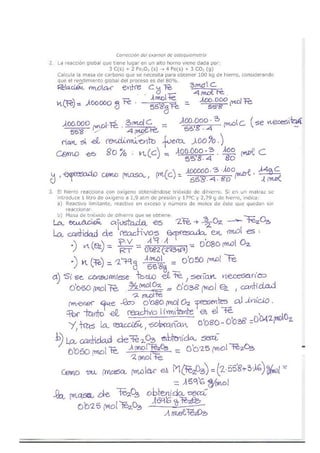 Corrección del examen de estequiometría
2. La reacción global que tiene lugar en un alto horno viene dada por:
3 C(s) + 2 Fe₂O₃ (s) → 4 Fe(s) + 3 CO₂ (g)
Calcula la masa de carbono que se necesita para obtener 100 kg de hierro, considerando
que el rendimiento global del proceso es del 80%.
Relación molar entre C y Fe 3 mol C / 4 mol Fe
n(Fe) = 100000 g Fe · 1 mol Fe / 55'8 g Fe = 100.000 / 55'8 mol Fe
100.000 / 55'8 mol Fe · 3 mol C / 4 mol Fe = 100.000 · 3 / 55'8 · 4 mol C (se necesitarían
si el rendimiento fuera 100%.)
Como es 80% : n(C) = 100.000 · 3 / 55'8 · 4 · 100 / 80 mol C
y, expresado como masa, m(C) = 100000 · 3 · 100 / 55'8 · 4 · 80 mol
3. El hierro reacciona con oxígeno obteniéndose trióxido de dihierro. Si en un matraz se
introduce 1 litro de oxígeno a 1,9 atm de presión y 17ºC y 2,79 g de hierro, indica:
a) Reactivo limitante, reactivo en exceso y número de moles de éste que quedan sin
reaccionar.
b) Masa de trióxido de dihierro que se obtiene.
La reacción, ajustada, es 2Fe + 3/2 O₂ → Fe₂O₃
La cantidad de reactivos expresada en mol es :
•) n(O₂) = P·V / RT = 1'9·1 / = 0'080 mol O₂
•) n(Fe) = 2'79 g · 1 mol / 55'8 g = 0'050 mol Fe
a) Si se consumiese todo el Fe, serían necesarios
0'050 mol Fe · 3/2 mol O₂ / 2 mol Fe = 0'038 mol O₂, cantidad
menor que los 0'080 mol O₂ presentes al inicio.
Por tanto el reactivo limitante es el Fe
Y, tras la reacción, sobrarían 0'080 - 0'038 = 0'042 mol O₂
b) La cantidad de Fe₂O₃ obtenida será
0'050 mol Fe · 1 mol Fe₂O₃ / 2 mol Fe = 0'025 mol Fe₂O₃
Como su masa molar es M(Fe₂O₃) = (2·55'8+3·16) g/mol =
= 159'6 g/mol
la masa de Fe₂O₃ obtenida será
0'025 mol Fe₂O₃ · 159'6 g Fe₂O₃ / 1 mol Fe₂O₃